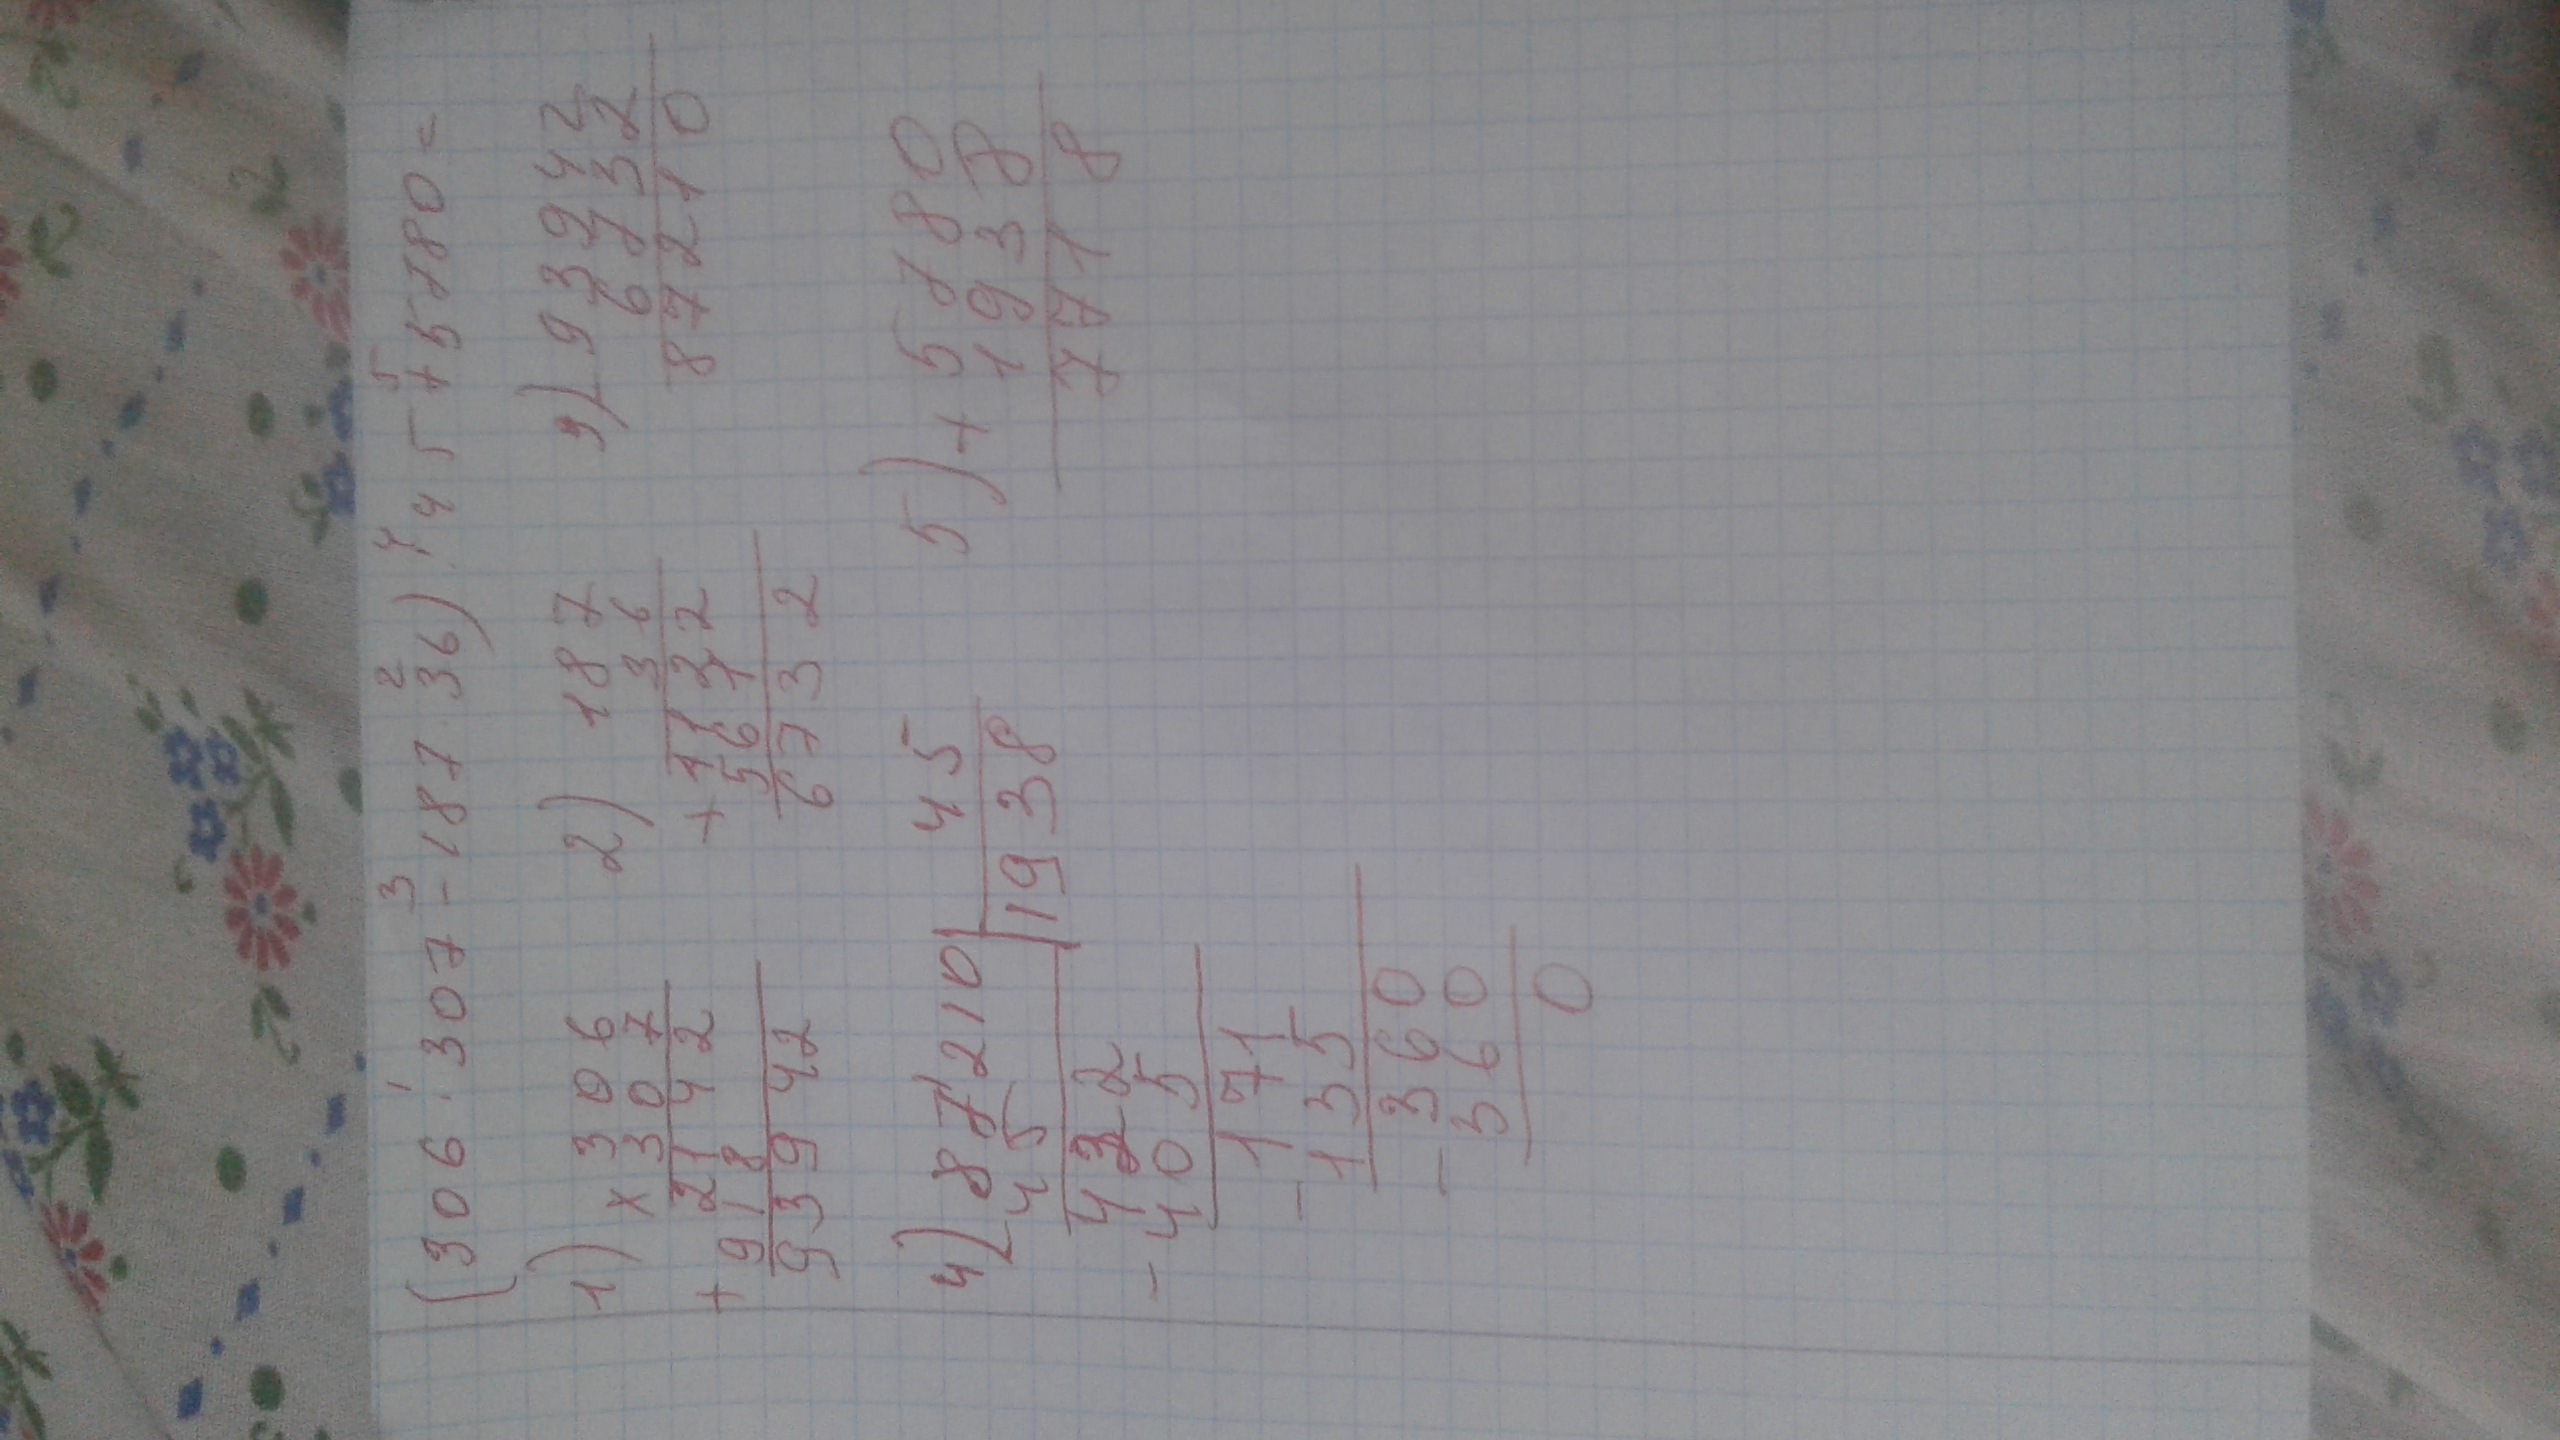 1 3 2 4 5
(306 · 307 - 187 · 36) : 45 + 5780 =
1) × 306
307
2142
+ 918
93942
2) 187
36
1122
+ 561
6732
3) 93942
6732
87210
4) 87210 45
45 1938
422
- 405
171
- 135
360
- 360
0
5) + 5780
1938
7718